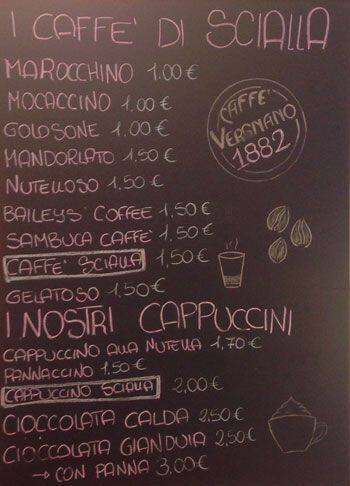 I CAFFE' DI SCIALLA
MAROCCHINO 1.00€
MOCACCINO 1.00€
GOLOSONE 1.00€
MANDORLATO 1.50€
NUTELLOSO 1.50€
CAFFE' VERGNANO 1882
BAILEYS' COFFEE 1,50€
SAMBUCA CAFFE' 1,50€
CAFFE' SCIALLA 1,50€
GELATOSO 1.50€
I NOSTRI CAPPUCCINI
CAPPUCCINO ALLA NUTELLA 1,70€
PANNACCINO 1.50€
CAPPUCCINO SCIALLA 2,00€
CIOCCOLATA CALDA 2,50€
CIOCCOLATA GIANDUIA 2,50€
→ CON PANNA 3,00€